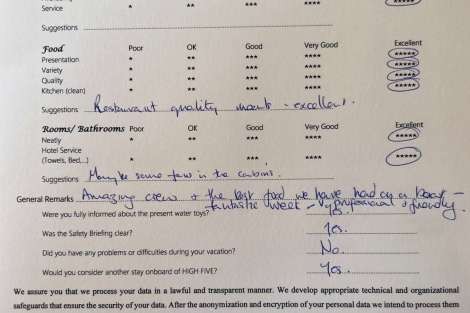 Service * ** *** **** *****
Suggestions
Food Poor OK Good Very Good Excellent
Presentation * ** *** **** *****
Variety * ** *** **** *****
Quality * ** *** **** *****
Kitchen (clean) * ** *** **** *****
Suggestions Restaurant quality meals - excellent.
Rooms/ Bathrooms Poor OK Good Very Good Excellent
Neatly * ** *** **** *****
Hotel Service
(Towels, Bed,...) * ** *** **** *****
Suggestions Maybe some fans in the cabins.
General Remarks Amazing crew + the best food we have had on a boat -
fantastic week - V. professional + friendly.
Were you fully informed about the present water toys? Yes.
Was the Safety Briefing clear? Yes.
Did you have any problems or difficulties during your vacation? No.
Would you consider another stay onboard of HIGH FIVE? Yes.
We assure you that we process your data in a lawful and transparent manner. We develop appropriate technical and organizational
safeguards that ensure the security of your data. After the anonymization and encryption of your personal data we intend to process them